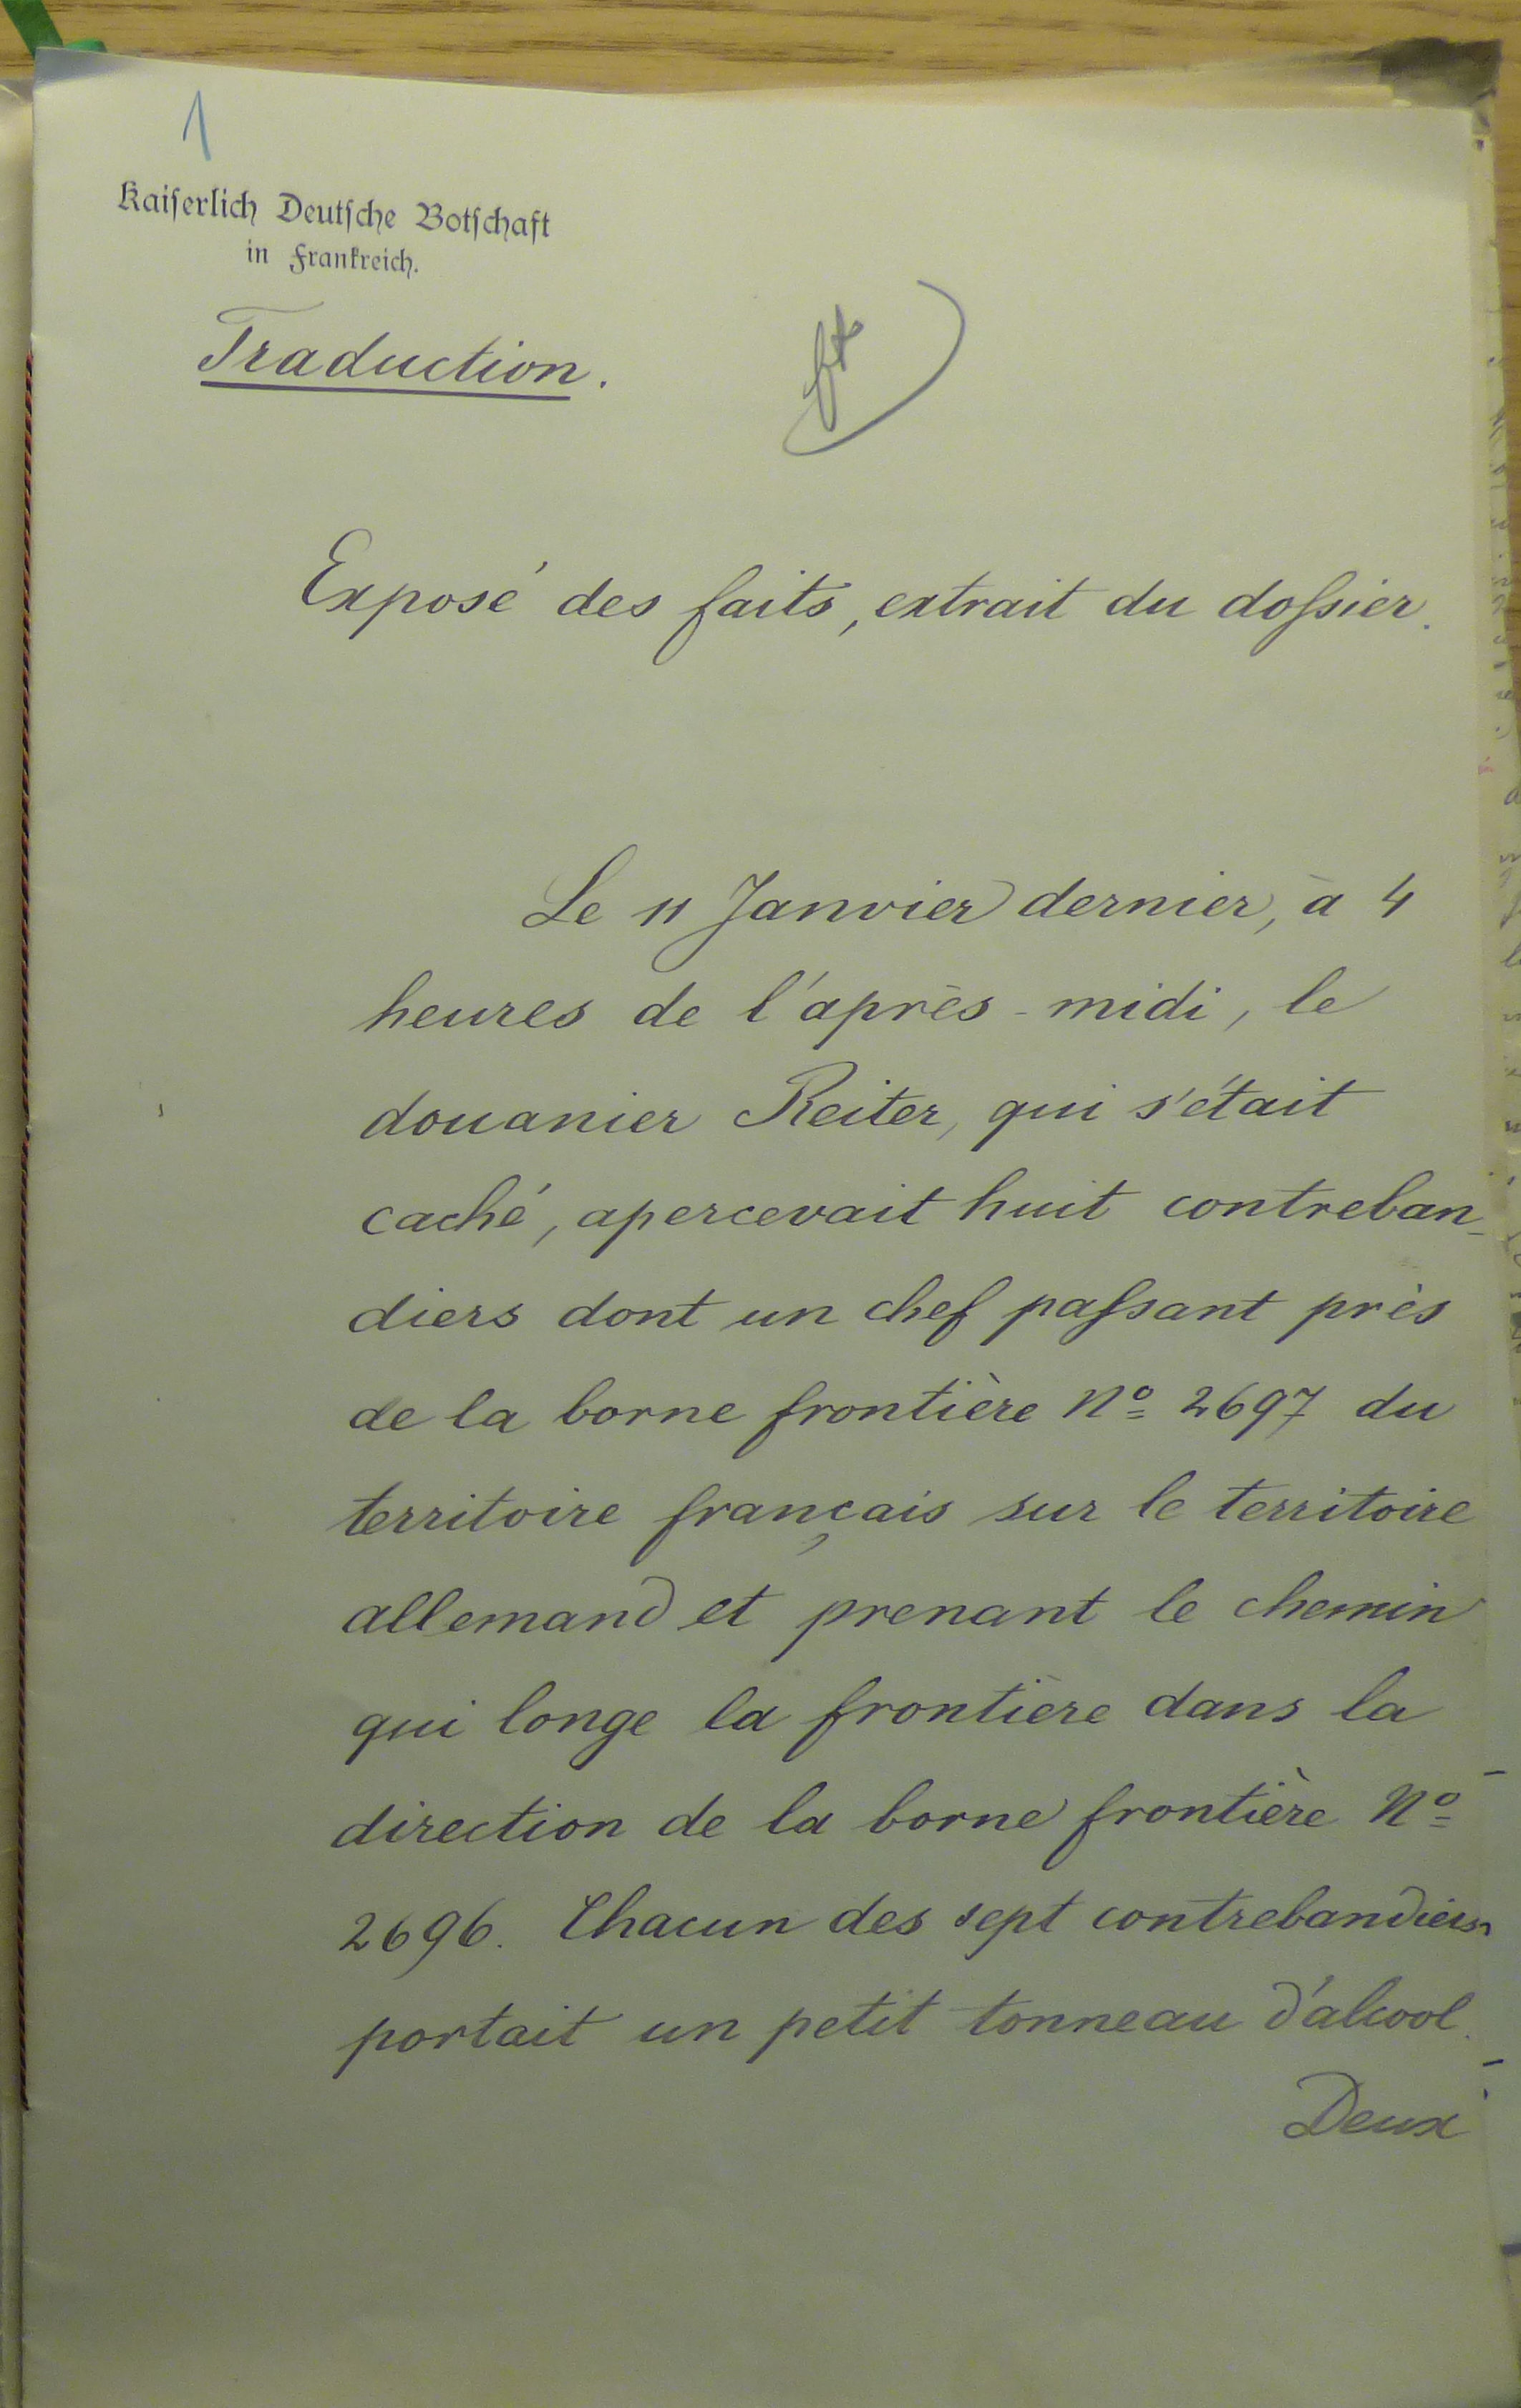 1
Kaiserlich Deutsche Botschaft
in Frankreich.
Traduction.
Exposé des faits, extrait du dossier.
Le 11 Janvier dernier, à 4
heures de l'après-midi, le
douanier Reiter, qui s'était
caché, apercevait huit contreban-
diers dont un chef passant près
de la borne frontière Nº 2697 du
territoire français sur le territoire
allemand et prenant le chemin
qui longe la frontière dans la
direction de la borne frontière Nº
2696. Chacun des sept contrebandiers
portait un petit tonneau d'alcool.
Deux